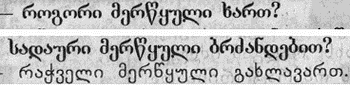 – როგორი მერწყული ხართ?
სადაური მერწყული ბრძანდებით?
– რაჭველი მერწყული გახლავართ.